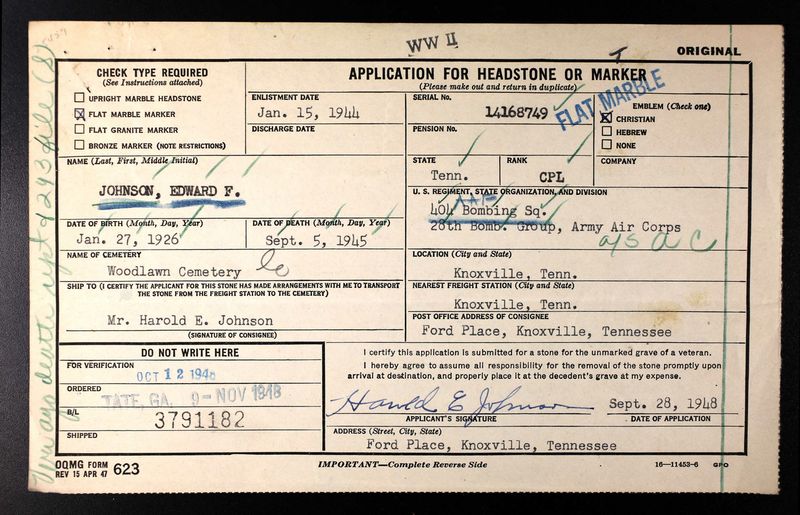 WW II
ORIGINAL
CHECK TYPE REQUIRED
(See Instructions attached)
UPRIGHT MARBLE HEADSTONE
X FLAT MARBLE MARKER
FLAT GRANITE MARKER
BRONZE MARKER (NOTE RESTRICTIONS)
APPLICATION FOR HEADSTONE OR MARKER
(Please make out and return in duplicate)
ENLISTMENT DATE
Jan. 15, 1944
DISCHARGE DATE
SERIAL No.
14168749
PENSION No.
FLAT MARBLE
EMBLEM (Check one)
X CHRISTIAN
HEBREW
NONE
NAME (Last, First, Middle Initial)
JOHNSON, EDWARD F.
STATE
Tenn.
RANK
CPL
COMPANY
U. S. REGIMENT, STATE ORGANIZATION, AND DIVISION
404 Bombing Sq.
28th Bomb. Group, Army Air Corps
DATE OF BIRTH (Month, Day, Year)
Jan. 27, 1926
DATE OF DEATH (Month, Day, Year)
Sept. 5, 1945
NAME OF CEMETERY
Woodlawn Cemetery
LOCATION (City and State)
Knoxville, Tenn.
SHIP TO (I CERTIFY THE APPLICANT FOR THIS STONE HAS MADE ARRANGEMENTS WITH ME TO TRANSPORT
THE STONE FROM THE FREIGHT STATION TO THE CEMETERY)
Mr. Harold E. Johnson
(SIGNATURE OF CONSIGNEE)
NEAREST FREIGHT STATION (City and State)
Knoxville, Tenn.
POST OFFICE ADDRESS OF CONSIGNEE
Ford Place, Knoxville, Tennessee
DO NOT WRITE HERE
FOR VERIFICATION
OCT 12 1948
ORDERED
TATE, GA. 9-NOV 1948
B/L
3791182
SHIPPED
I certify this application is submitted for a stone for the unmarked grave of a veteran.
I hereby agree to assume all responsibility for the removal of the stone promptly upon
arrival at destination, and properly place it at the decedent's grave at my expense.
Harold E Johnson
Sept. 28, 1948
APPLICANT'S SIGNATURE
DATE OF APPLICATION
ADDRESS (Street, City, State)
Ford Place, Knoxville, Tennessee
OQMG FORM
REV 15 APR 47 623
IMPORTANT—Complete Reverse Side
16—11453-6 GPO